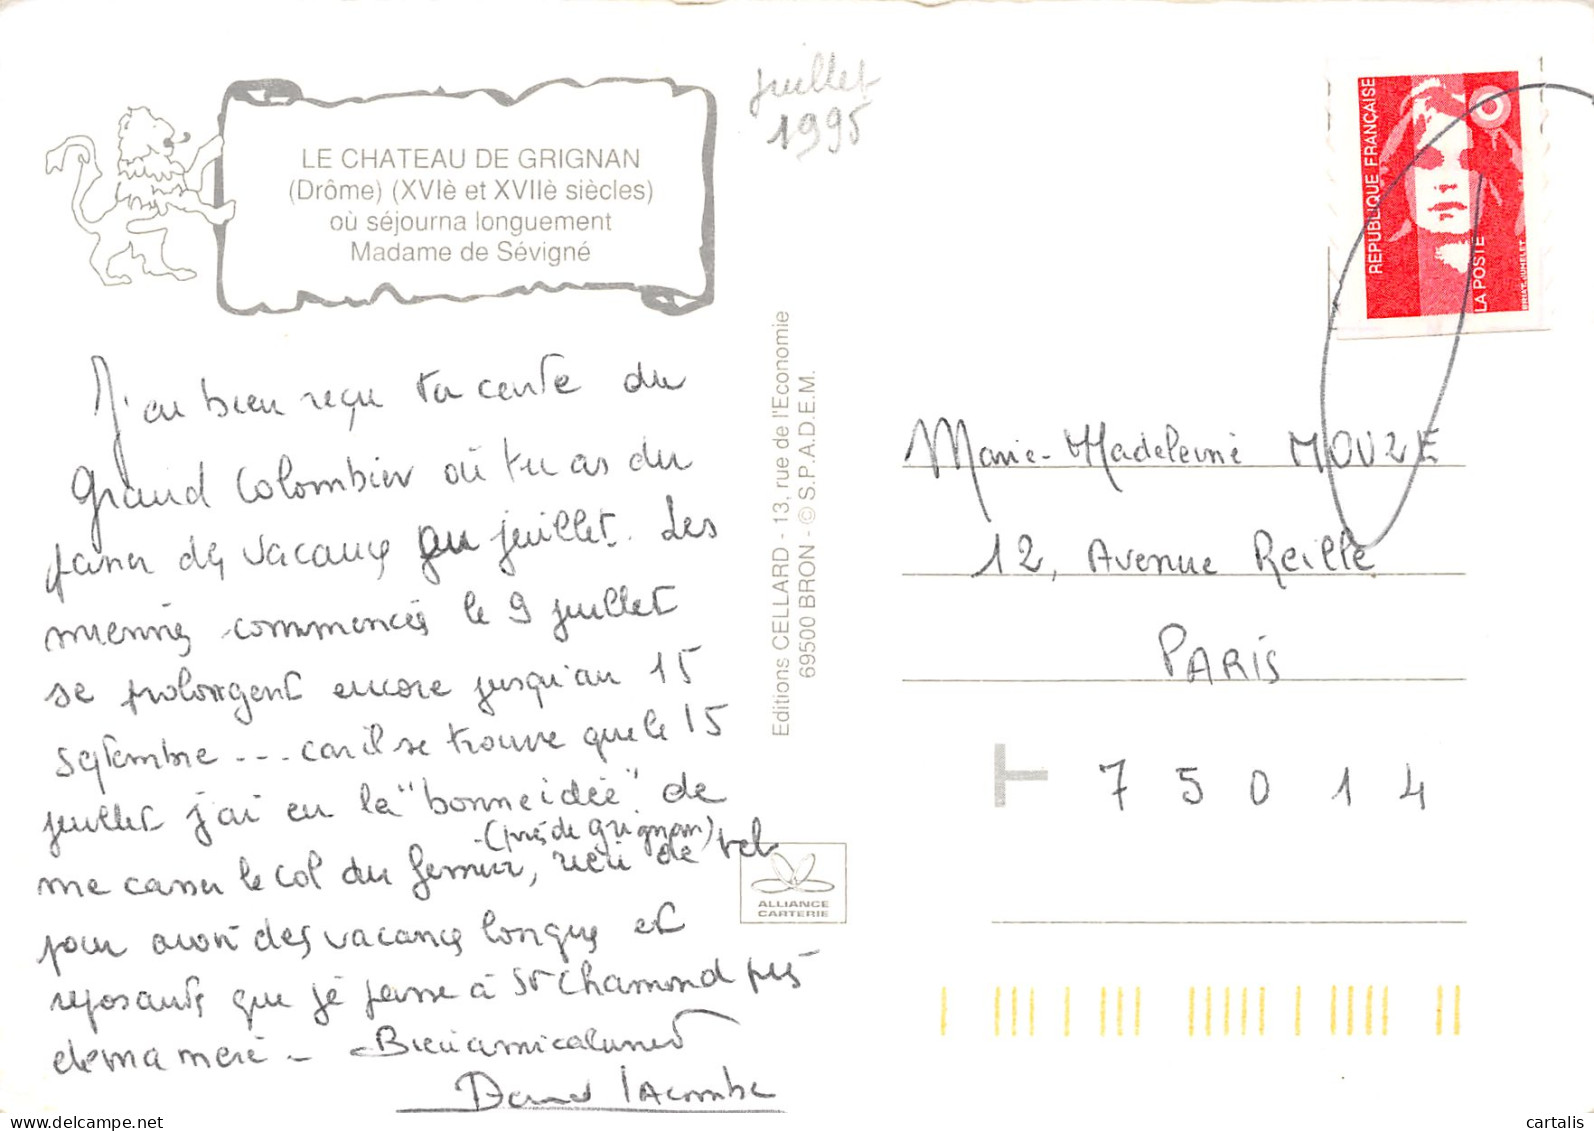 juillet
1995
LE CHATEAU DE GRIGNAN
(Drôme) (XVIè et XVIIè siècles)
où séjourna longuement
Madame de Sévigné
J'ai bien reçu ta carte du
Grand Colombier où tu as du
passer des vacances en juillet. Les
miennes commencées le 9 juillet
se prolongent encore jusqu'au 15
septembre --- car il se trouve que le 15
juillet j'ai eu la "bonne idée" de
(près de Grignan)
me casser le col du fémur, rien de tel
pour avoir des vacances longues et
reposantes que je passe à St Chamond près
de ma mère - Bien amicalement
Lacombe
Editions CELLARD - 13, rue de l'Economie
69500 BRON - © S.P.A.D.E.M.
ALLIANCE
CARTERIE
REPUBLIQUE FRANÇAISE
LA POSTE
BRIAT. JUMELET
Marie-Madeleine MOUZE
12, Avenue Reille
PARIS
75014
delcampe.net
cartalis